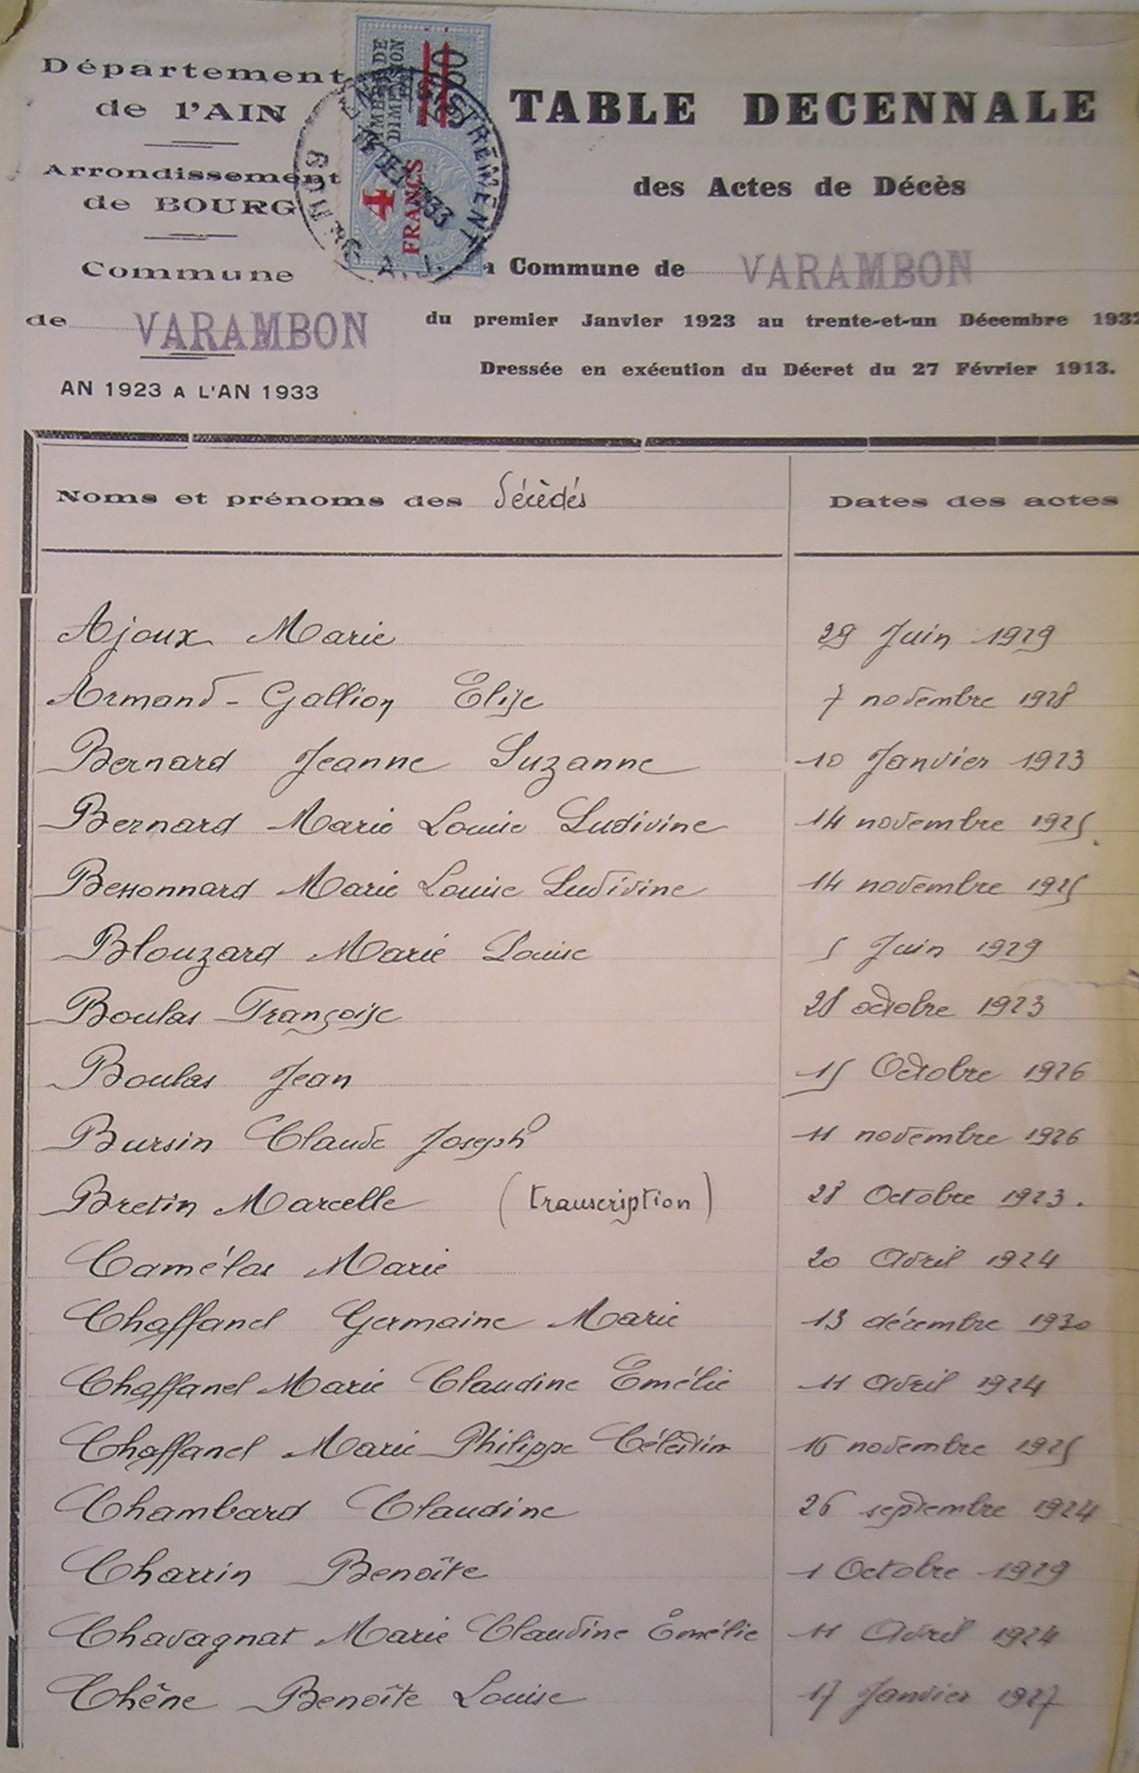 Département
de l'AIN
Arrondissement
de BOURG
Commune
de VARAMBON
AN 1923 A L'AN 1933
TIMBRE DE
DIMENSION
4
FRANCS
ENREGISTREMENT
BOURG A.J.
TABLE DECENNALE
des Actes de Décès
a Commune de VARAMBON
du premier Janvier 1923 au trente-et-un Décembre 1932
Dressée en exécution du Décret du 27 Février 1913.
Noms et prénoms des Décèdés Dates des actes
Ajoux Marie 29 Juin 1929
Armand-Gallion Elise 7 novembre 1928
Bernard Jeanne Suzanne 10 Janvier 1923
Bernard Marie Louise Ludivine 14 novembre 1925
Bessonnard Marie Louise Ludivine 14 novembre 1925
Blouzard Marie Louise 5 Juin 1929
Boulas Françoise 28 octobre 1923
Boulas Jean 15 Octobre 1926
Bursin Claude Joseph 11 novembre 1926
Bretin Marcelle (transcription) 28 Octobre 1923.
Camélas Marie 20 Avril 1924
Chaffanel Germaine Marie 13 décembre 1930
Chaffanel Marie Claudine Emélie 11 Avril 1924
Chaffanel Marie Philippe Célestin 16 novembre 1925
Chambard Claudine 26 septembre 1924
Charrin Benoîte 1 Octobre 1929
Chavagnat Marie Claudine Emélie 11 Avril 1924
Chêne Benoîte Louise 17 Janvier 1927